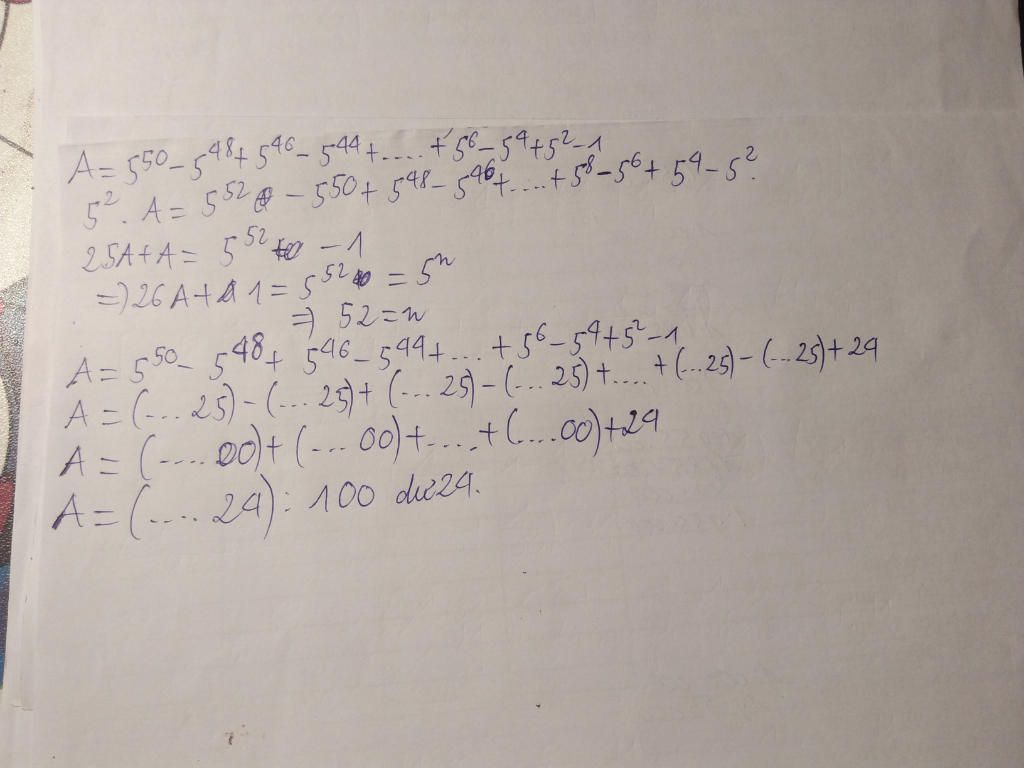 A = 5^50 - 5^48 + 5^46 - 5^44 + .... + 5^6 - 5^4 + 5^2 - 1
5^2 . A = 5^52 - 5^50 + 5^48 - 5^46 + .... + 5^8 - 5^6 + 5^4 - 5^2.
25A + A = 5^52 - 1
=> 26A + 1 = 5^52 = 5^n
=> 52 = n
A = 5^50 - 5^48 + 5^46 - 5^44 + ... + 5^6 - 5^4 + 5^2 - 1
A = (... 25) - (... 25) + (... 25) - (... 25) + .... + (...25) - (...25) + 24
A = (.... 00) + (... 00) + .... + (....00) + 24
A = (.... 24) : 100 dư 24.